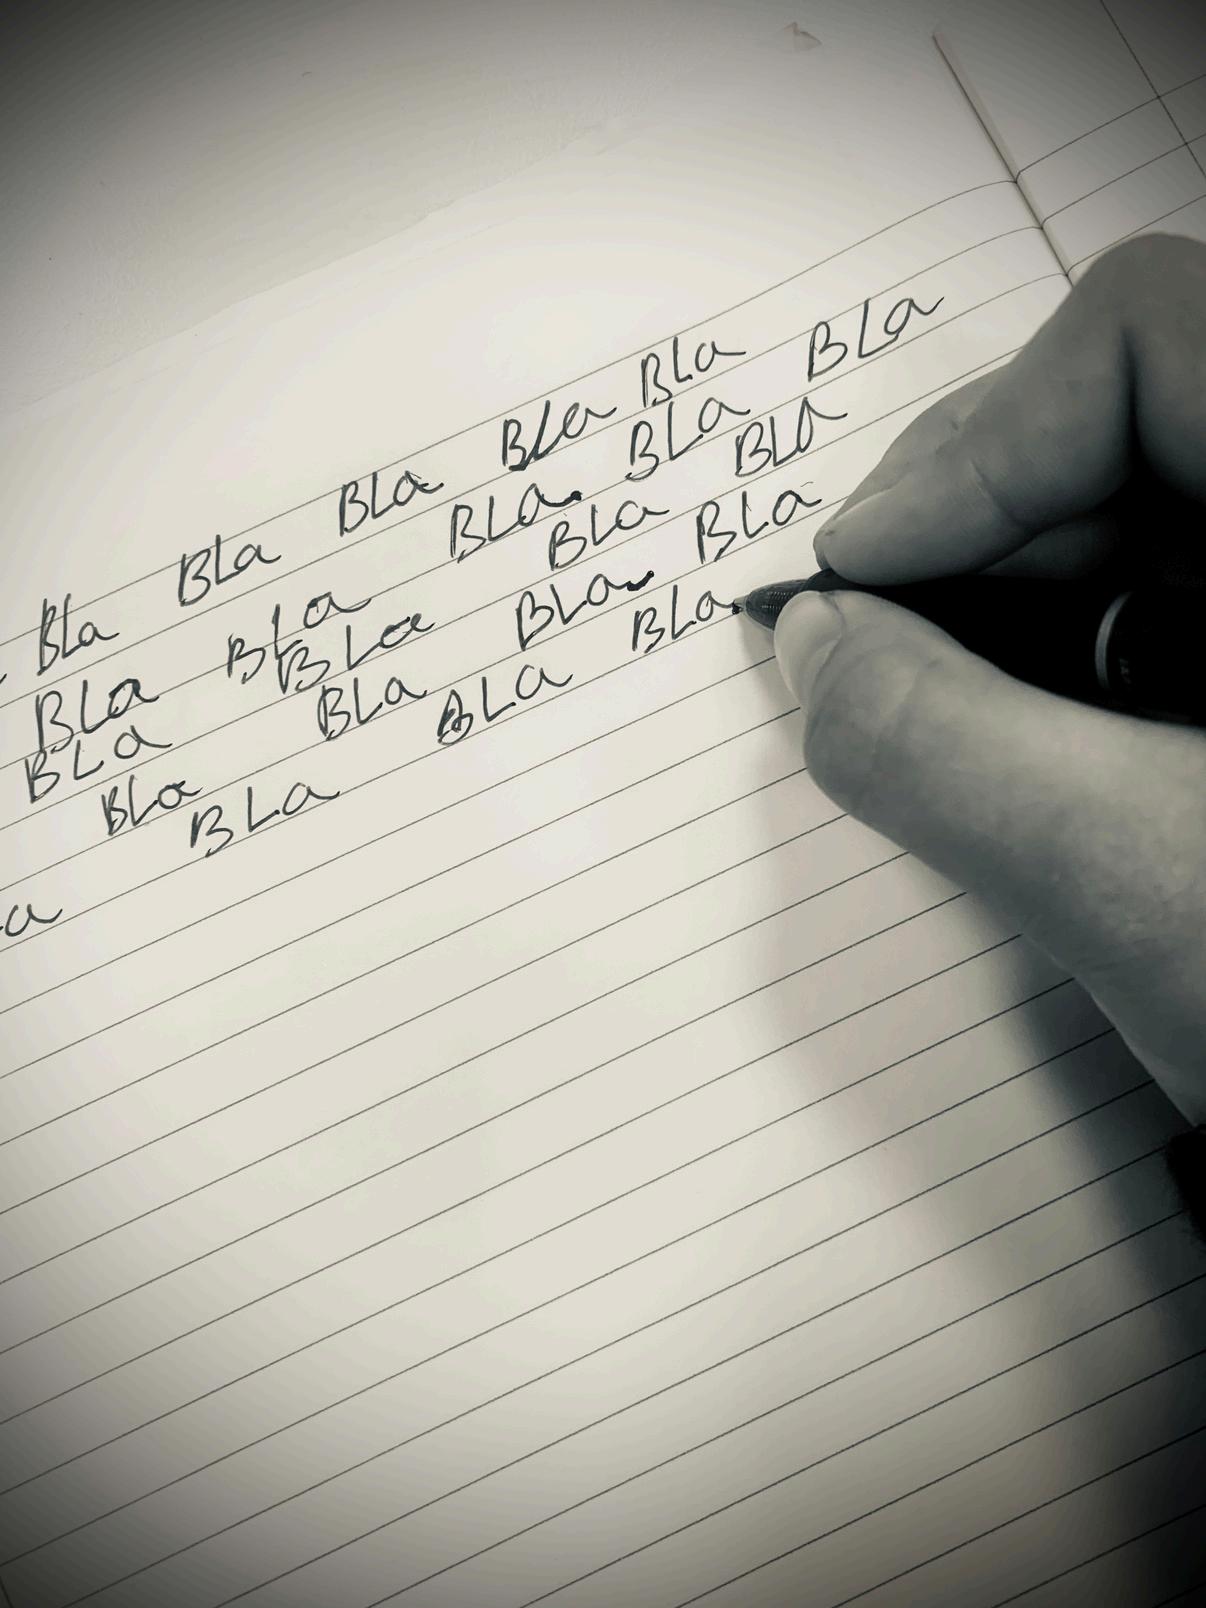 Bla BLa BLa Bla BLa
BLa BLa BLa. BLa BLa
BLa BLa BLa BLA
BLa BLa BLa. BLa
BLa BLa BLa